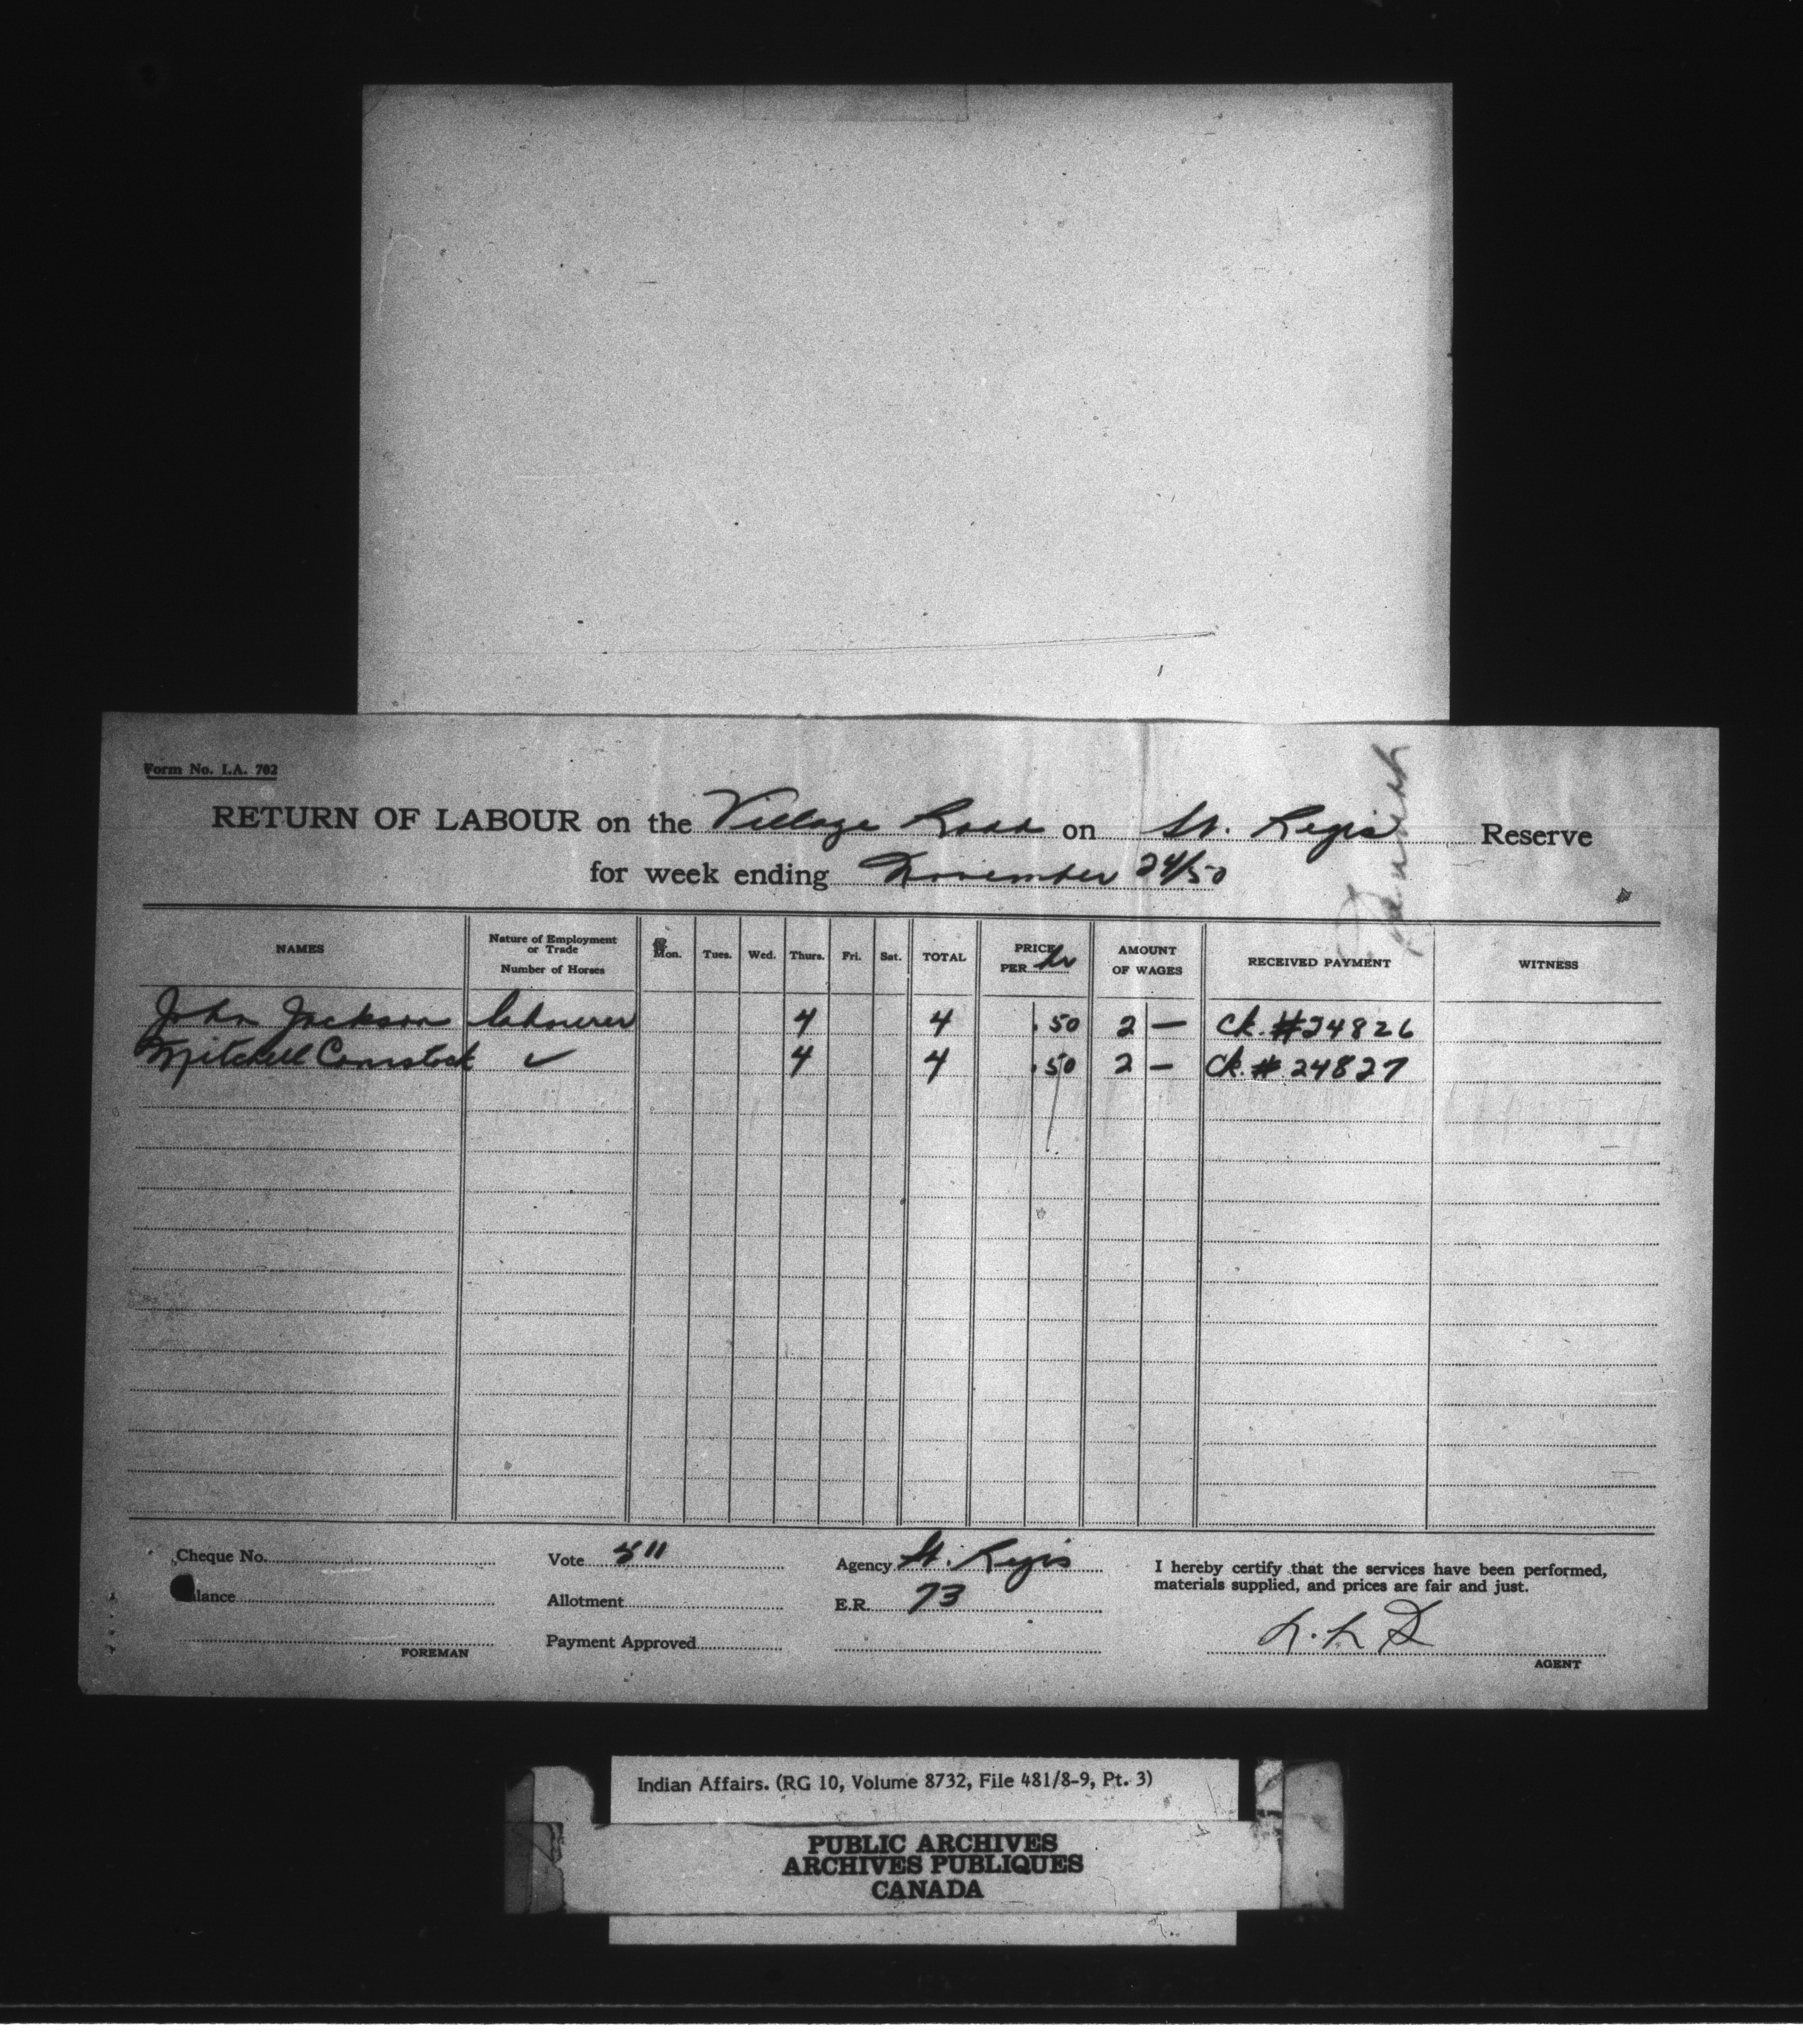 Form No. I.A. 702
RETURN OF LABOUR on the Village Road on St. Regis Reserve
for week ending November 24/50
NAMES Nature of Employment or Trade Number of Horses Mon. Tues. Wed. Thurs. Fri. Sat. TOTAL PRICE PER hr AMOUNT OF WAGES RECEIVED PAYMENT WITNESS
John Jackson labourer 4 4 .50 2 — Ck. #24826
Mitchell Comstock ✓ 4 4 .50 2 — Ck. # 24827
Cheque No. Vote 511 Agency St. Regis
I hereby certify that the services have been performed,
materials supplied, and prices are fair and just.
alance Allotment E.R. 73
Payment Approved
FOREMAN AGENT
Indian Affairs. (RG 10, Volume 8732, File 481/8-9, Pt. 3)
PUBLIC ARCHIVES
ARCHIVES PUBLIQUES
CANADA